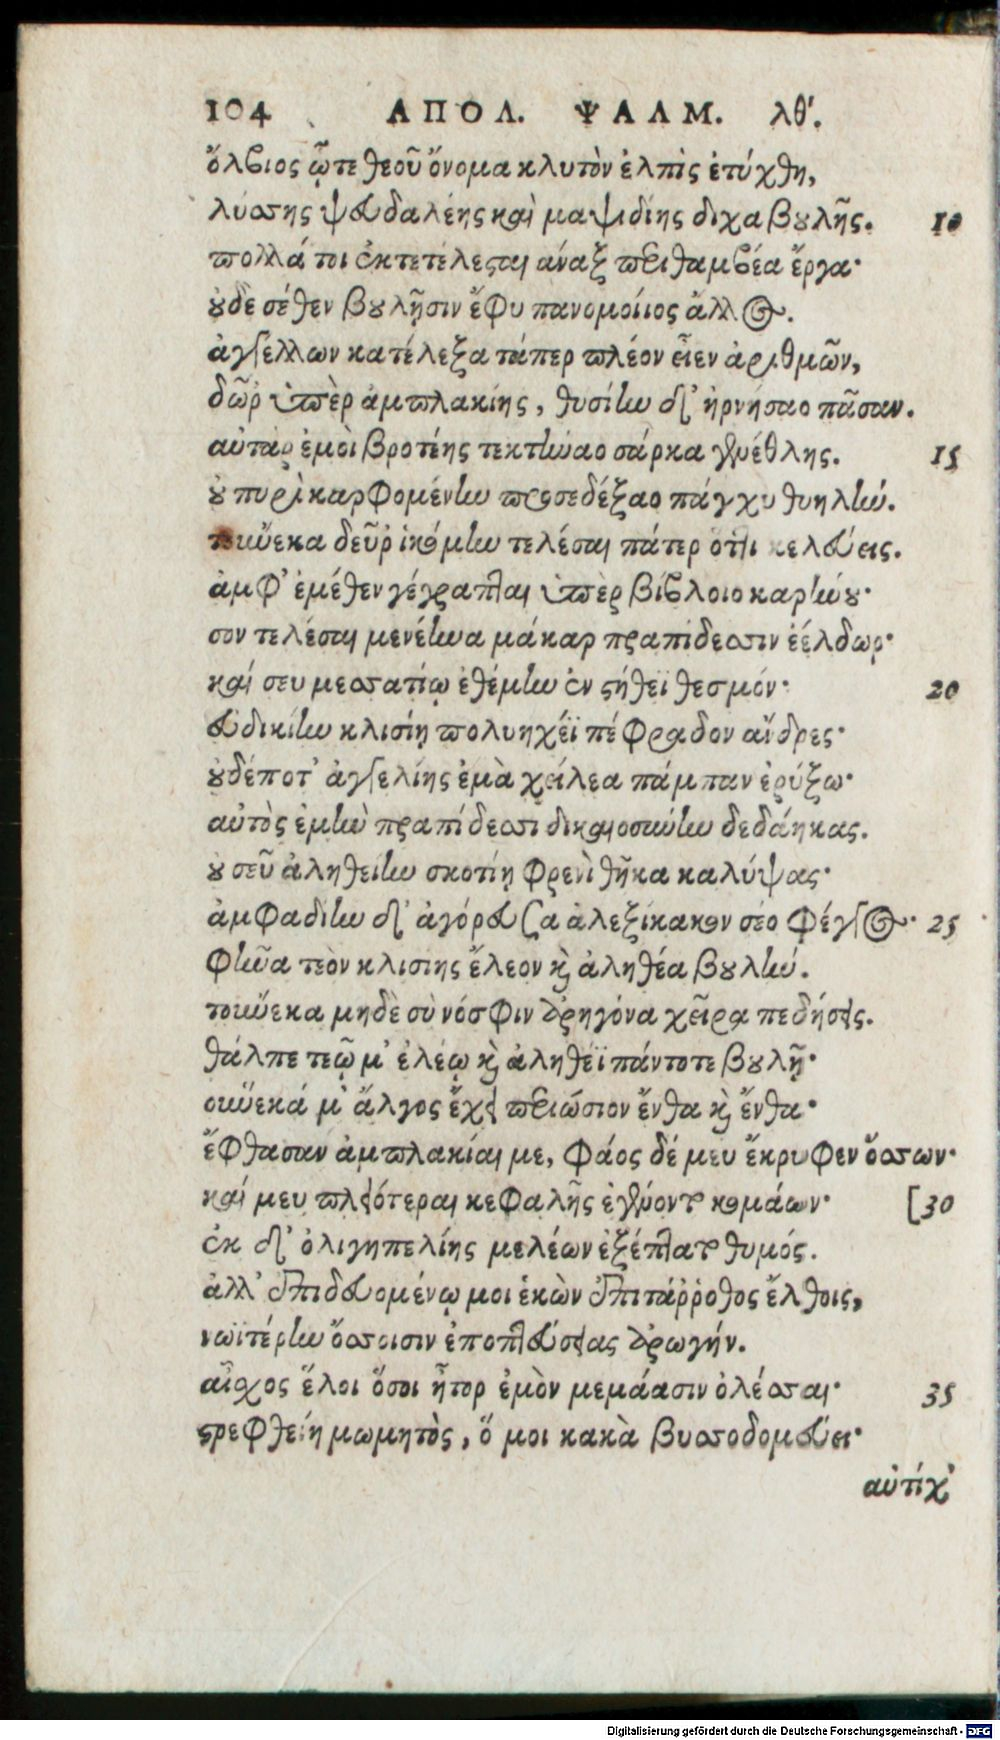 104 ΑΠΟΛ. ΨΑΛΜ. λθ΄.
ὄλβιος ᾧτε θεοῦ ὄνομα κλυτὸν ἐλπὶς ἐτύχθη,
λύσσης ψευδαλέης καὶ μαψιδίης δίχα βουλῆς. 10
πολλά τοι ἐκτετέλεσται ἄναξ περιθαμβέα ἔργα·
οὐδὲ σέθεν βουλῇσιν ἔφυ πανομοίιος ἄλλος.
ἀγγέλλων κατέλεξα τάπερ πλέον εἶεν ἀριθμῶν,
δῶρ᾽ ὑπὲρ ἀμπλακίης, θυσίην δ᾽ ἠρνήσαο πᾶσαν.
αὐτὰρ ἐμοὶ βροτέης τεκτήναο σάρκα γενέθλης. 15
οὐ πυρὶ καρφομένην προσεδέξαο πάγχυ θυηλήν.
τούνεκα δεῦρ᾽ ἱκόμην τελέσαι πάτερ ὅττι κελεύεις.
ἀμφ᾽ ἐμέθεν γέγραπται ὑπὲρ βίβλοιο καρήνου·
σὸν τελέσαι μενέηνα μάκαρ πραπίδεσσιν ἐέλδωρ·
καί σευ μεσσατίῳ ἐθέμην ἐν στήθεϊ θεσμόν· 20
εὐδικίην κλισίῃ πολυηχέϊ πέφραδον ἄνδρες·
οὐδέποτ᾽ ἀγγελίης ἐμὰ χείλεα πάμπαν ἐρύξω·
αὐτὸς ἐμὴν πραπίδεσσι δικαιοσύνην δεδάηκας.
οὐ σεῦ ἀληθείην σκοτίῃ φρενὶ θῆκα καλύψας·
ἀμφαδίην δ᾽ ἀγόρευσα ἀλεξίκακον σέο φέγγος· 25
φῆνα τεὸν κλισίης ἔλεον καὶ ἀληθέα βουλήν.
τούνεκα μηδὲ σὺ νόσφιν ἀρηγόνα χεῖρα πεδήσεις.
θάλπε τεῷ μ᾽ ἐλέῳ καὶ ἀληθέϊ πάντοτε βουλῇ·
οὕνεκά μ᾽ ἄλγος ἔχει περιώσιον ἔνθα καὶ ἔνθα·
ἔφθασαν ἀμπλακίαι με, φάος δέ μευ ἔκρυφεν ὄσσων·
καί μευ πλειότεραι κεφαλῆς ἐγένοντο κομάων· [30
ἐκ δ᾽ ὀλιγηπελίης μελέων ἐξέπτατο θυμός.
ἀλλ᾽ ἐπιδευομένῳ μοι ἑκὼν ἐπιτάρροθος ἔλθοις,
νωϊτέρην ὄσσοισιν ἐποπτεύσειας ἀρωγήν.
αἶσχος ἕλοι ὅσοι ἦτορ ἐμὸν μεμάασιν ὀλέσσαι· 35
στρεφθείη μωμητὸς, ὅ μοι κακὰ βυσσοδομεύει·
αὐτίχ᾽
Digitalisierung gefördert durch die Deutsche Forschungsgemeinschaft - DFG